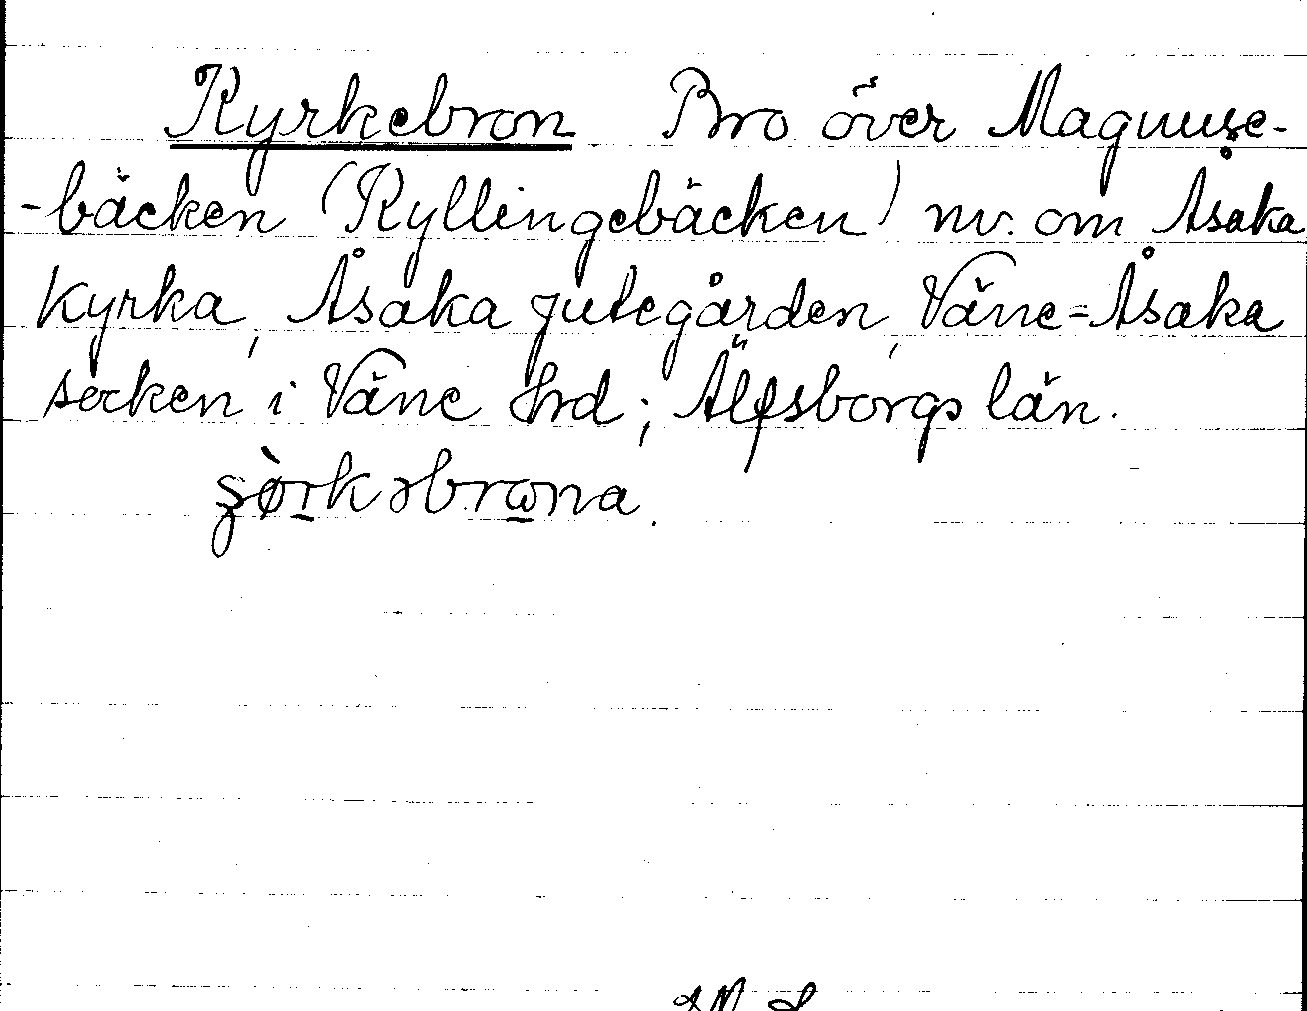 Kyrkebron Bro över Magnuse-
-bäcken (Kyllingebäcken) nv. om Åsaka
kyrka, Åsaka Jutegården, Väne=Åsaka
socken i Väne Hrd; Älfsborgs län.